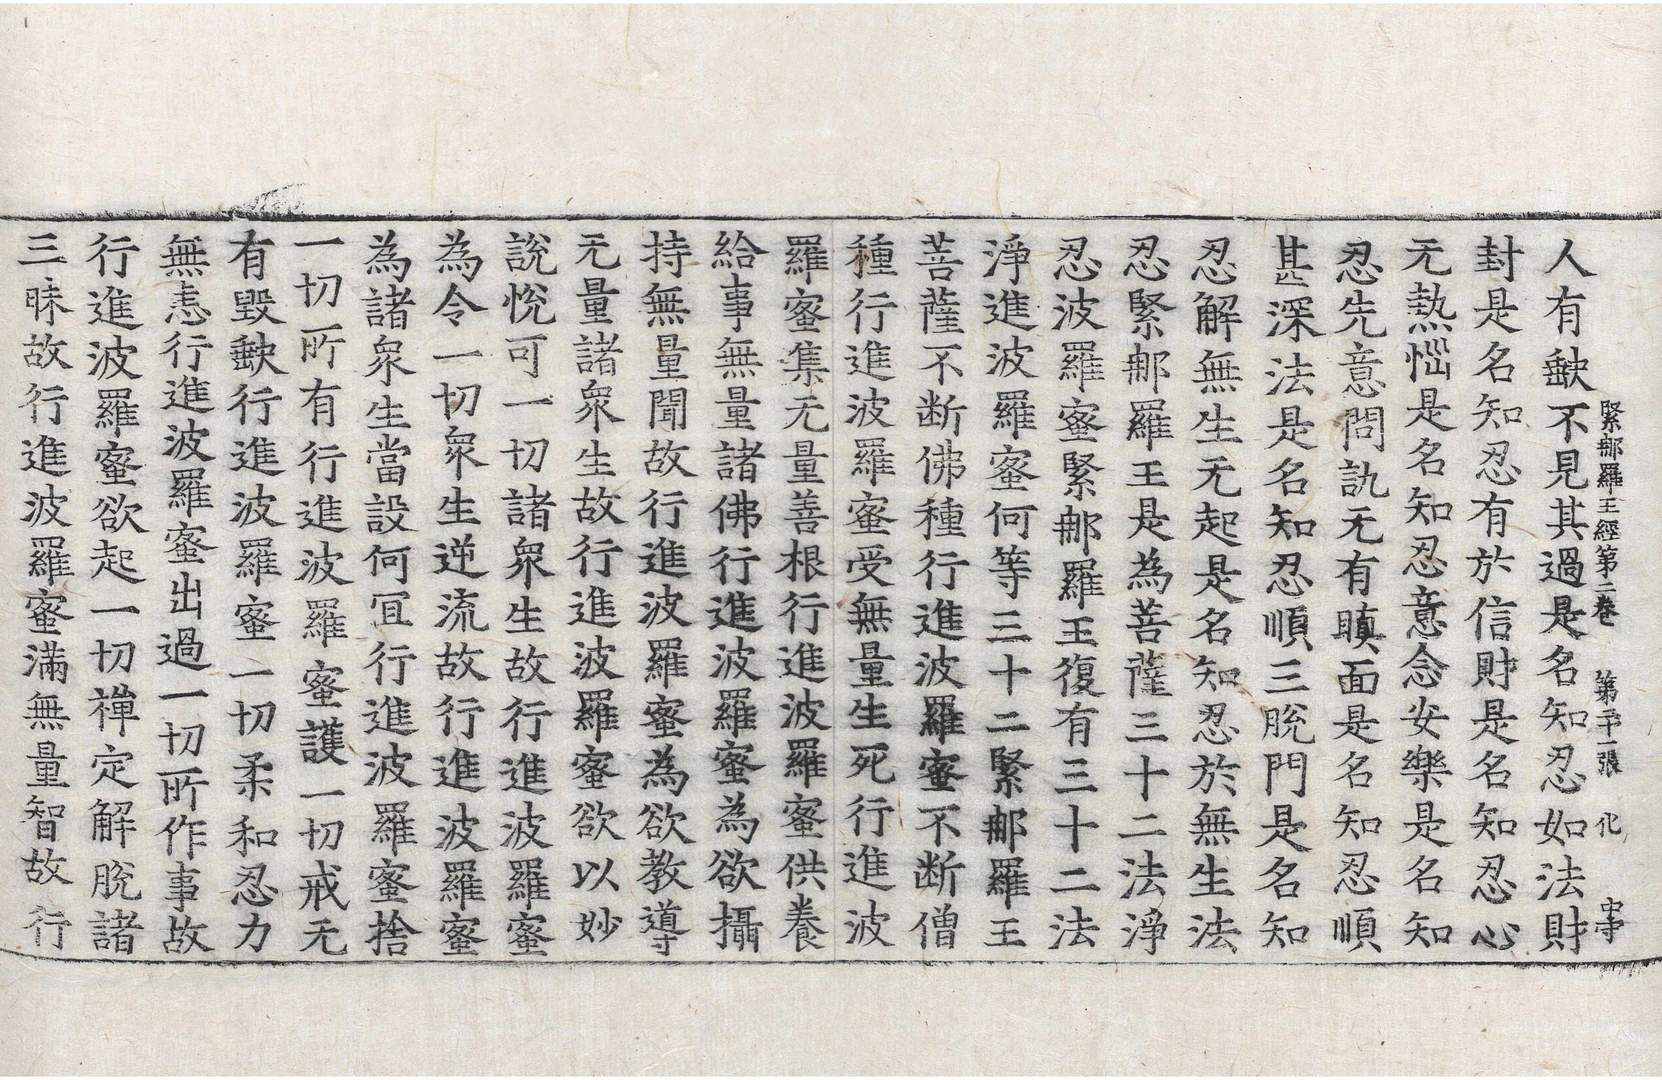 緊𨙻羅王經第二卷 第二十一張 化
人有缺不見其過是名知忍如法財
封是名知忍有於信財是名知忍心
无熱惱是名知忍意念安樂是名知
忍先意問訊无有瞋面是名知忍順
甚深法是名知忍順三脫門是名知
忍解無生无起是名知忍於無生法
忍緊𨙻羅王是為菩薩三十二法淨
忍波羅蜜緊𨙻羅王復有三十二法
淨進波羅蜜何等三十二緊𨙻羅王
菩薩不断佛種行進波羅蜜不断僧
種行進波羅蜜受無量生死行進波
羅蜜集无量善根行進波羅蜜供養
給事無量諸佛行進波羅蜜為欲攝
持無量聞故行進波羅蜜為欲教導
无量諸衆生故行進波羅蜜欲以妙
說悅可一切諸衆生故行進波羅蜜
為令一切衆生逆流故行進波羅蜜
為諸衆生當設何冝行進波羅蜜捨
一切所有行進波羅蜜護一切戒无
有毀缺行進波羅蜜一切柔和忍力
無恚行進波羅蜜出過一切所作事故
行進波羅蜜欲起一切禪定解脫諸
三昧故行進波羅蜜滿無量智故行